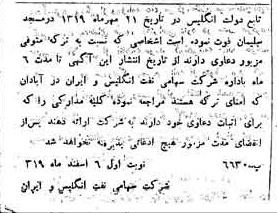 تابع دولت انگلیس در تاریخ ۲۱ مهرماه ۱۳۱۹ درمسجد
سلیمان فوت نموده است اشخاصی که نسبت به ترکه متوفی
مزبور دعاوی دارند از تاریخ انتشار این آگهی تا مدت ۶
ماه باداره شرکت سهامی نفت انگلیس و ایران در آبادان
که امنای ترکه هستند مراجعه نموده کلیه مدارکی را که
برای اثبات دعاوی خود دارند به شرکت ارائه دهند پس از
انقضای مدت مزبور هیچ ادعائی پذیرفته نخواهد شد
پ-۶۶۳۰ نوبت اول ۶ اسفند ماه ۳۱۹
شرکت سهامی نفت انگلیس و ایران